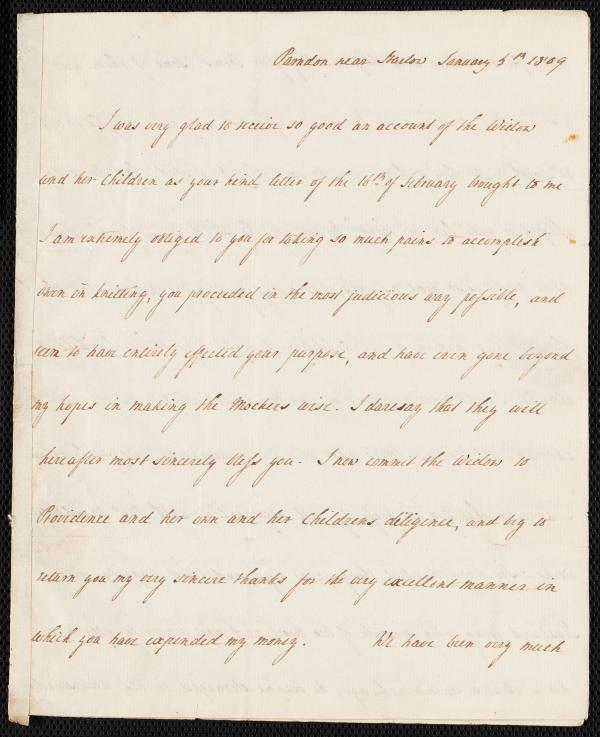 Parndon near Harlow January 5th 1809
I was very glad to receive so good an account of the Widow
and her Children as your kind letter of the 16th of February brought to me
I am extremely obliged to you for taking so much pains to accomplish
them in knitting, you proceeded in the most judicious way possible, and
seem to have entirely effected your purpose, and have even gone beyond
my hopes in making the Mockers wise. I daresay that they will
hereafter most sincerely bless you. I now commit the Widow to
Providence and her own and her Childrens diligence, and beg to
return you my very sincere thanks for the very excellent manner in
which you have expended my money. We have been very much